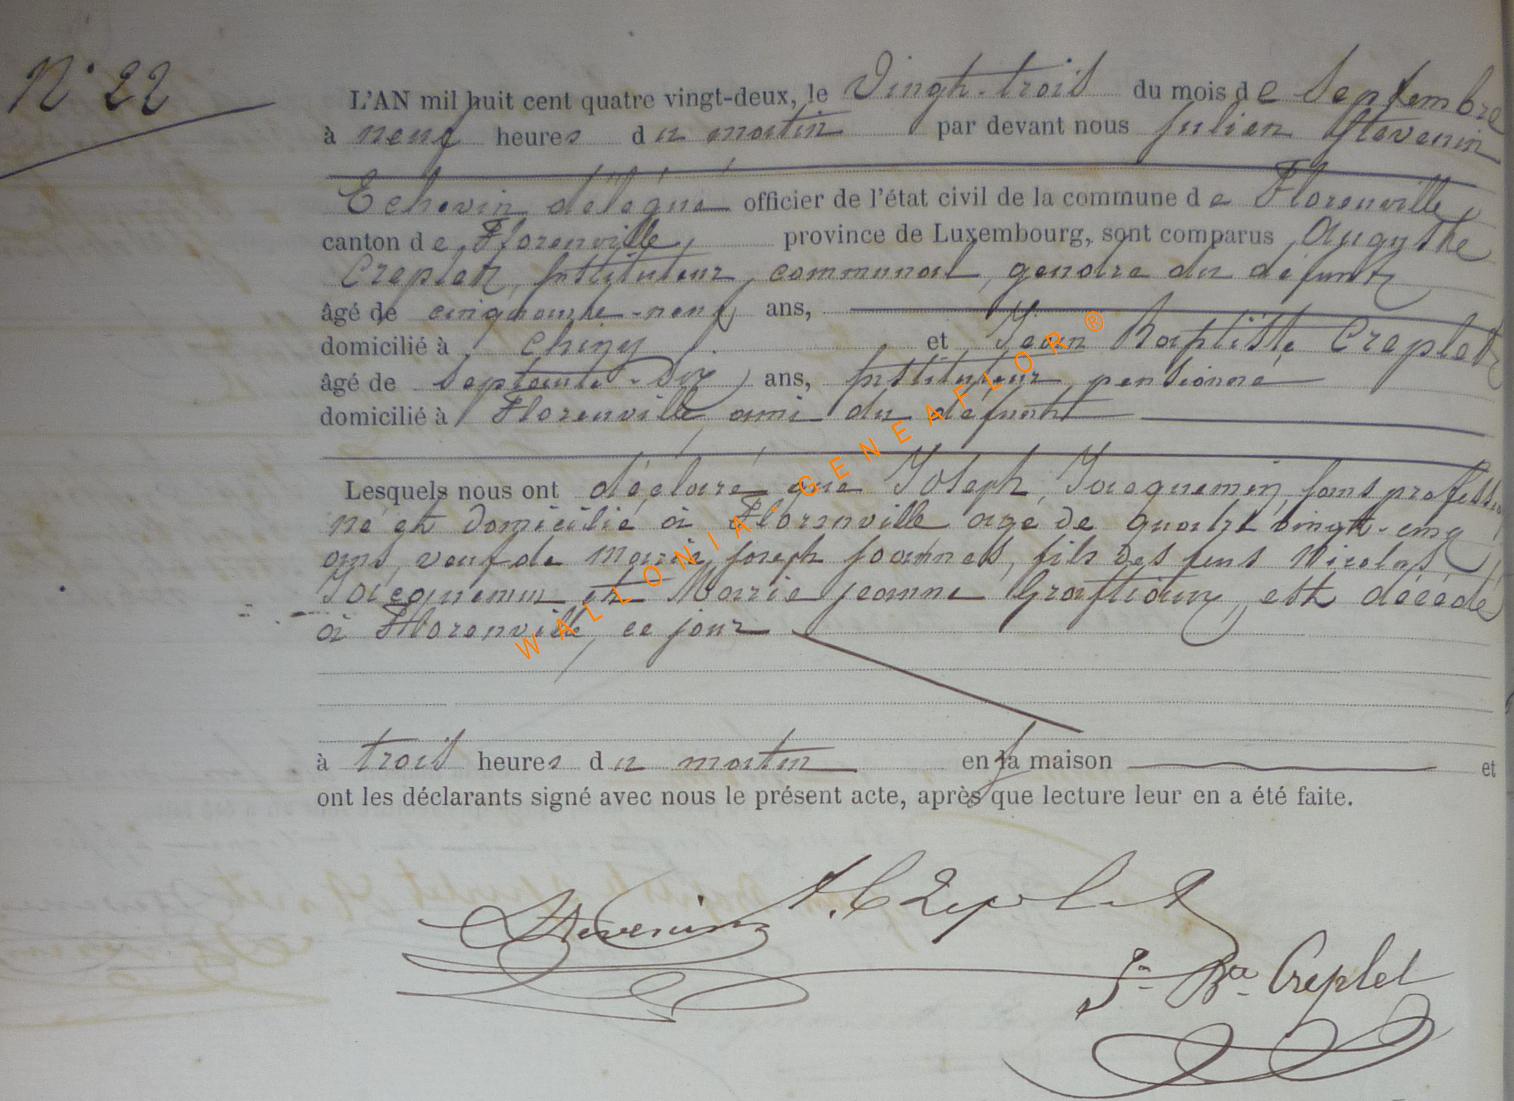 N° 22
L'AN mil huit cent quatre vingt-deux, le Vingt-trois du mois de Septembre
à neuf heures du matin par devant nous Julien Stevenin
Echevin délégué officier de l'état civil de la commune de Florenville,
canton de Florenville, province de Luxembourg, sont comparus Auguste
Creplet, Instituteur communal, gendre du défunt
âgé de cinquante-neuf ans,
domicilié à Chiny et Jean Baptiste Creplet
âgé de Septante-Dix ans, Instituteur pensionné
domicilié à Florenville ami du défunt
Lesquels nous ont déclaré que Joseph Jacquemin, sans profession
né et domicilié à Florenville agé de quatre vingt-cinq
ans, veuf de Marie Joseph Joannes, fils des feus Nicolas
Jacquemin et Marie Jeanne est décédé
à Florenville, ce jour
à trois heures du matin en sa maison et
ont les déclarants signé avec nous le présent acte, après que lecture leur en a été faite.
Stevenin A. Creplet
Jn Bte Creplet
WALLONIA GENEAFLOR ®